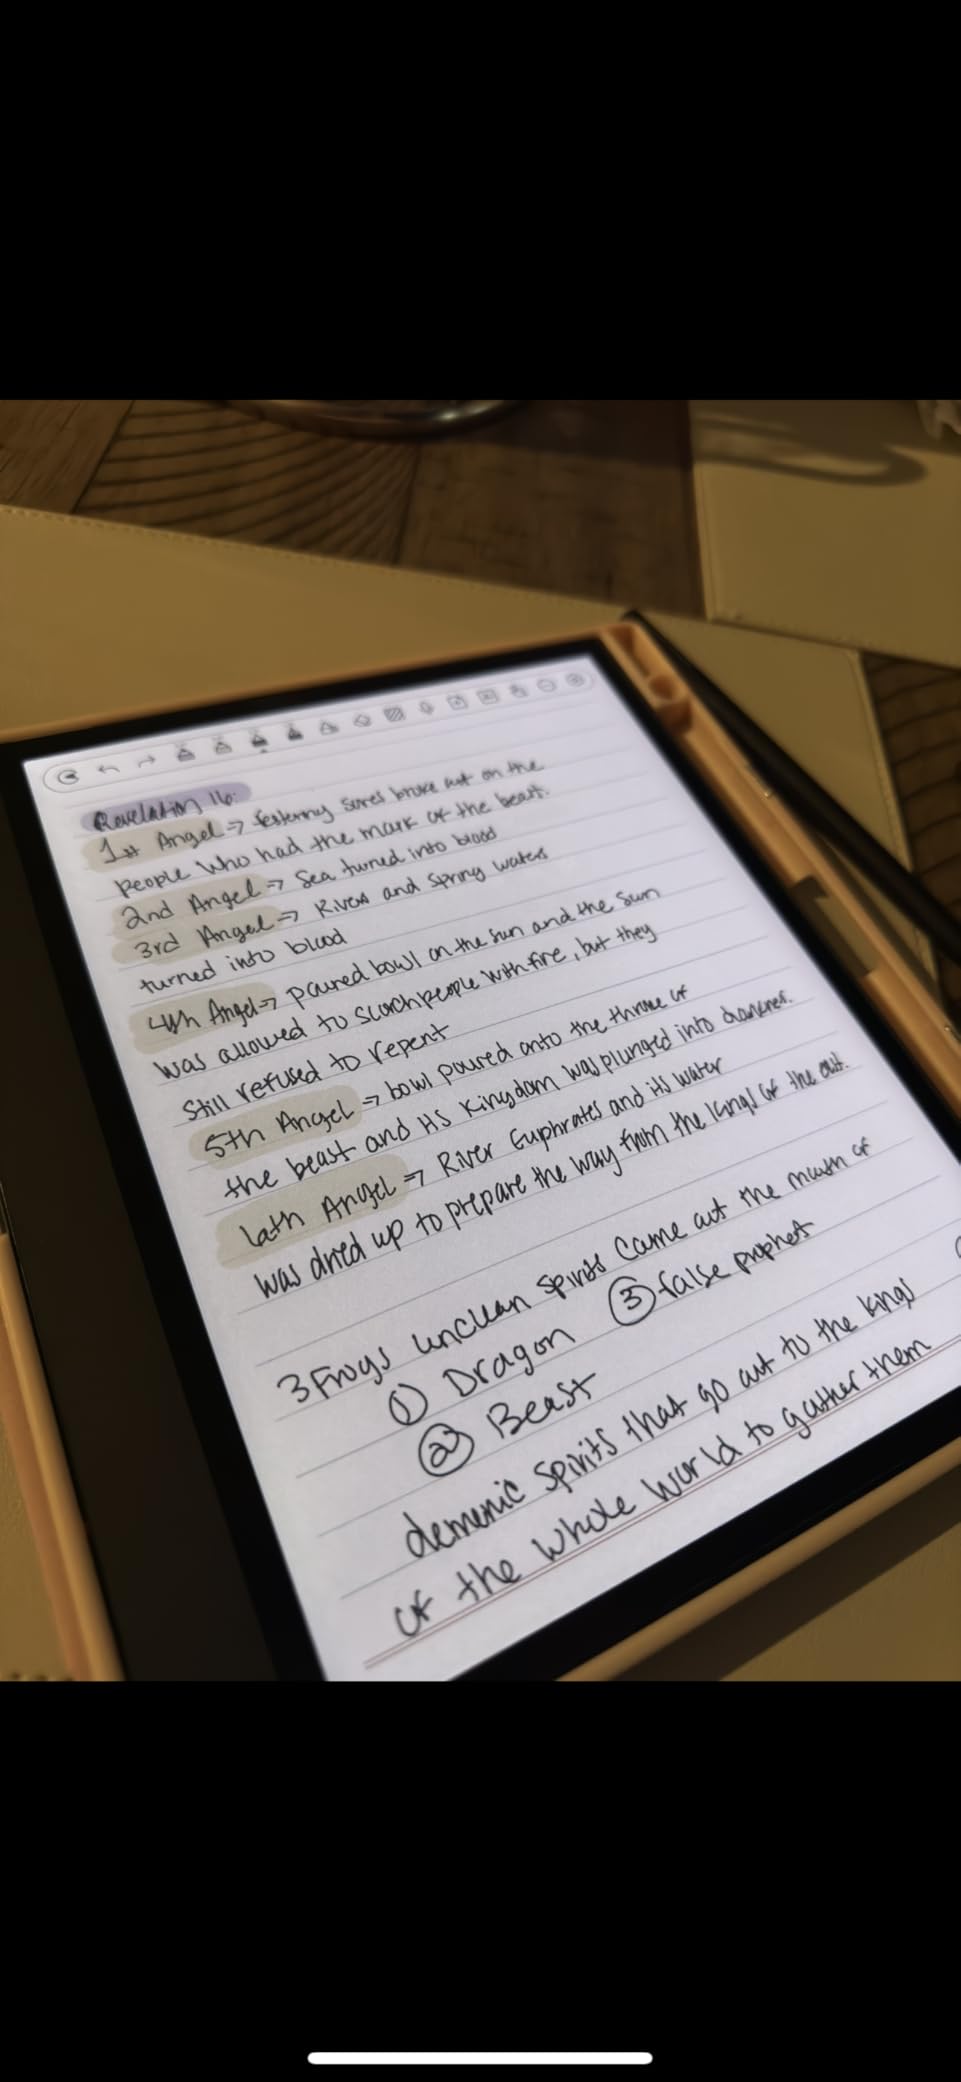 Revelation 16:
1st Angel → festering sores broke out on the
people who had the mark of the beast.
2nd Angel → Sea turned into blood
3rd Angel → Rivers and spring waters
turned into blood
4th Angel → poured bowl on the sun and the sun
was allowed to scorch people with fire, but they
still refused to repent
5th Angel → bowl poured onto the throne of
the beast and its kingdom was plunged into darkness.
6th Angel → River Euphrates and its water
was dried up to prepare the way from the kings of the east.
3 Frogs unclean spirits came out the mouth of
① Dragon ③ false prophet
② Beast
demonic spirits that go out to the kings
of the whole world to gather them